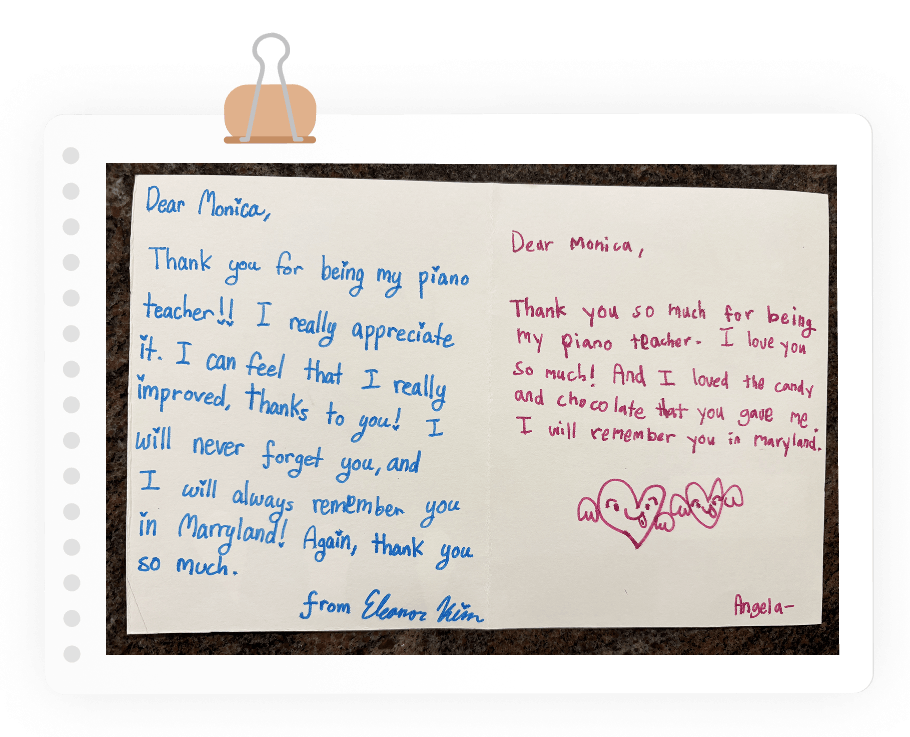 Dear Monica,
Thank you for being my piano
teacher!! I really appreciate
it. I can feel that I really
improved, thanks to you! I
will never forget you, and
I will always remember you
in Marryland! Again, thank you
so much.
from Eleanor Kim
Dear Monica,
Thank you so much for being
my piano teacher. I love you
so much! And I loved the candy
and chocolate that you gave me.
I will remember you in maryland.
Angela-